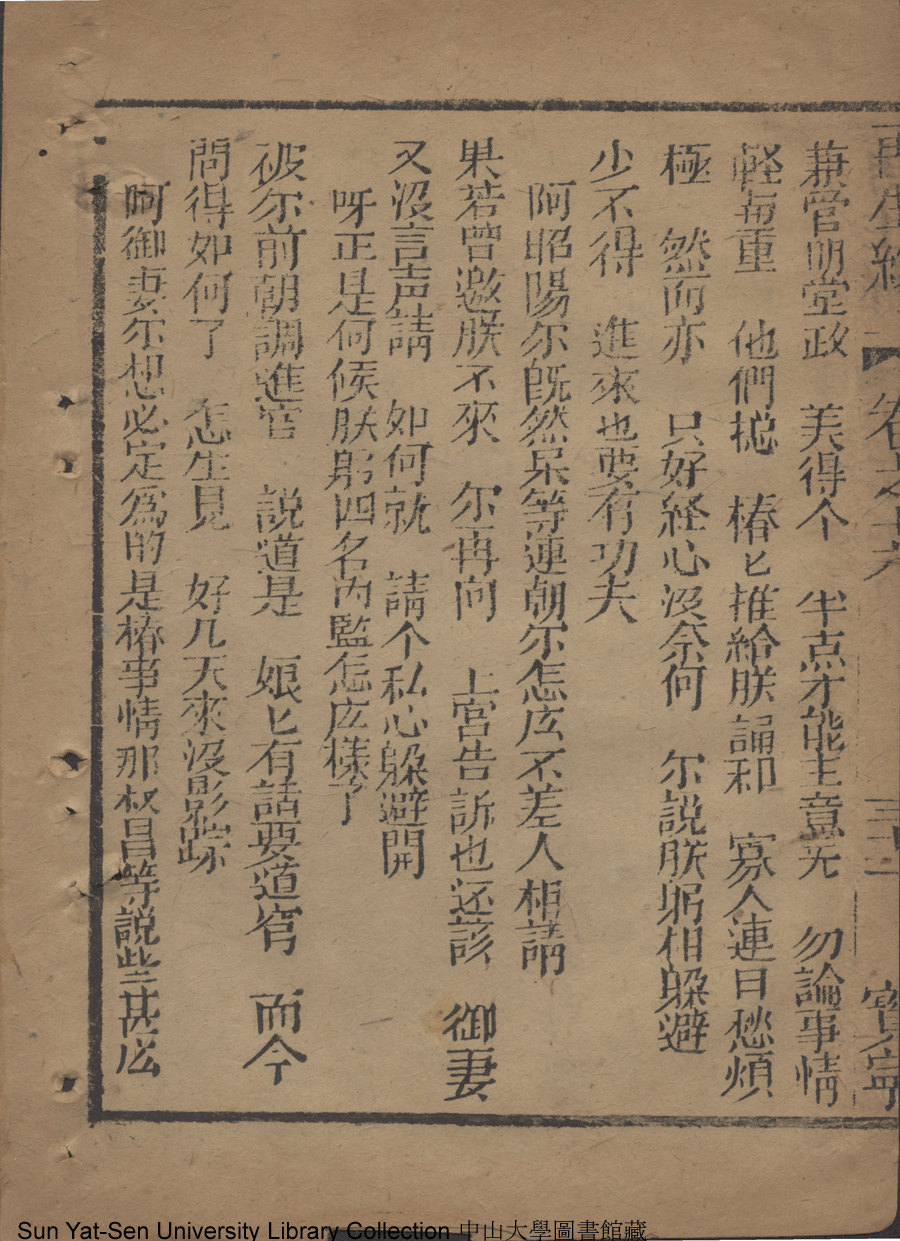 再生緣 卷之十六 三十二 寶寧
兼管明堂政 美得个 半点才能主意无 勿論事情
軽與重 他們搃 椿匕推給朕 誦和 寡人連日愁煩
極 然而亦 只好経心没奈何 尔説朕躬相躲避
少不得 進來也要有功夫
阿昭陽尔既然呆等連朝尔怎庅不差人相請
果若曾邀朕不來 尔再向 上宮告訴也还該 御妻
又没言声請 如何就 請个私心躲避開
呀正是何候朕躬四名內監怎庅樣了
破尔前朝調進宮 説道是 娘匕有話要道窮 而今
問得如何了 怎生見 好几天來没影踪
呵御妻尔想必定為的是椿事情那权昌等説些甚庅
Sun Yat-Sen University Library Collection 中山大學圖書館藏